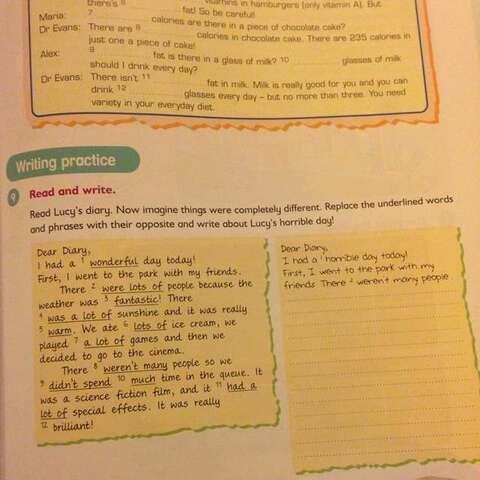 there's 8 vitamins in hamburgers (only vitamin A). But
fat! So be careful!
Maria: 7 calories are there in a piece of chocolate cake?
Dr Evans: There are 8 calories in chocolate cake. There are 235 calories in
just one a piece of cake!
Alex: 9 fat is there in a glass of milk? 10 glasses of milk
should I drink every day?
Dr Evans: There isn't 11 fat in milk. Milk is really good for you and you can
drink 12 glasses every day – but no more than three. You need
variety in your everyday diet.
Writing practice
9 Read and write.
Read Lucy's diary. Now imagine things were completely different. Replace the underlined words
and phrases with their opposite and write about Lucy's horrible day!
Dear Diary,
I had a 1 wonderful day today!
First, I went to the park with my friends.
There 2 were lots of people because the
weather was 3 fantastic! There
4 was a lot of sunshine and it was really
5 warm. We ate 6 lots of ice cream, we
played 7 a lot of games and then we
decided to go to the cinema.
There 8 weren't many people so we
9 didn't spend 10 much time in the queue. It
was a science fiction film, and it 11 had a
lot of special effects. It was really
12 brilliant!
Dear Diary,
I had a 1 horrible day today!
First, I went to the park with my
friends There 2 weren't many people